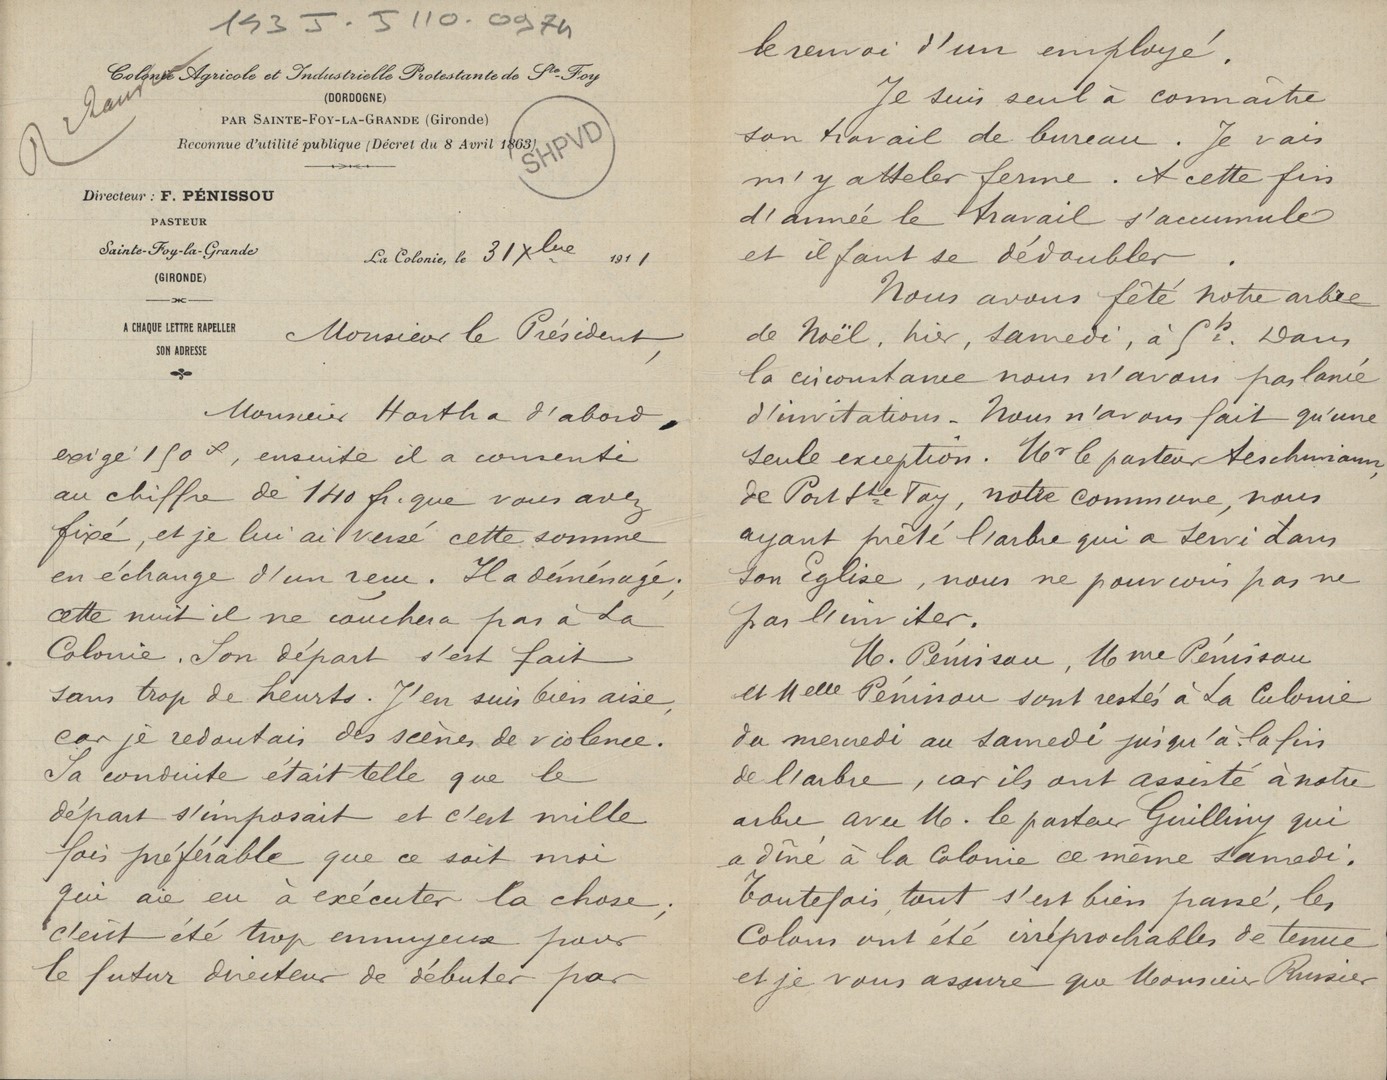 143 J. J 110. 0974
Colonie Agricole et Industrielle Protestante de Ste-Foy
(DORDOGNE)
PAR SAINTE-FOY-LA-GRANDE (Gironde)
Reconnue d'utilité publique (Décret du 8 Avril 1863)
SHPVD
Directeur : F. PÉNISSOU
PASTEUR
Sainte-Foy-la-Grande
(GIRONDE)
A CHAQUE LETTRE RAPELLER
SON ADRESSE
La Colonie, le 31 Xbre 1911
Monsieur le Président,
Monsieur Hortha d'abord,
exigé 150 f, ensuite il a consenti
au chiffre de 140 fr. que vous avez
fixé, et je lui ai versé cette somme
en échange d'un reçu. Il a déménagé;
cette nuit il ne couchera pas à La
Colonie. Son départ s'est fait
sans trop de heurts. J'en suis bien aise,
car je redoutais des scènes de violence.
Sa conduite était telle que le
départ s'imposait et c'est mille
fois préférable que ce soit moi
qui aie eu à exécuter la chose;
c'eût été trop ennuyeux pour
le futur directeur de débuter par
le renvoi d'un employé.
Je suis seul à connaître
son travail de bureau. Je vais
m'y atteler ferme. A cette fin
d'année le travail s'accumule
et il faut se dédoubler.
Nous avons fêté notre arbre
de Noël, hier, samedi, à 5h. Dans
la circonstance nous n'avons pas lancé
d'invitations. Nous n'avons fait qu'une
seule exception. Mr le pasteur Aeschimann,
de Port Ste Foy, notre commune, nous
ayant prêté l'arbre qui a servi dans
son Eglise, nous ne pouvions pas ne
pas l'inviter.
M. Pénissou, Mme Pénissou
et Melle Pénissou sont restés à La Colonie
du mercredi au samedi jusqu'à la fin
de l'arbre, car ils ont assisté à notre
arbre avec M. le pasteur Guilliny qui
a dîné à la Colonie ce même samedi.
Toutefois, tout s'est bien passé, les
Colons ont été irréprochables de tenue
et je vous assure que Monsieur Russier